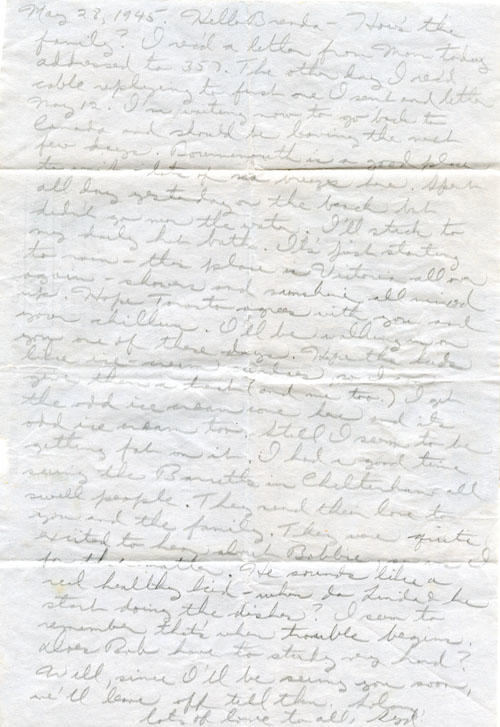 May 23, 1945. Hello Brenda - How's the
family? I rec'd a letter from Mom today
addressed to 357. The other day I rec'd
cable replying to first one I sent and letter
May 12. I'm waiting now to go back to
Canada and should be leaving the next
few days. Bournemouth is a good place
to wait - lots of sea breeze here. Spent
all day yesterday on the beach but
didn't go near the water. I'll stick to
my daily hot bath. It's just starting
to rain - this place is Victoria all over
again - showers and sunshine all mixed
up. Hope Toronto agrees with you and
your chilluns. I'll be calling on
you one of these days. Hope the kids
like ice cream so I can
give them a treat (and me too.) I get
the odd ice cream cone here and it's
odd ice cream too. Still I seem to be
getting fat on it. I had a good time
seeing the Barretts in Cheltenham all
swell people. They send their love to
you and the family. They were quite
excited to hear about Bobbie I
for that matter. He sounds like a
real healthy kid - when do Linda & he
start doing the dishes? I seem to
remember that's when trouble begins.
Does Bob have to study very hard?
Well, since I'll be seeing you soon,
we'll leave off till then. So long
lots of love to all,